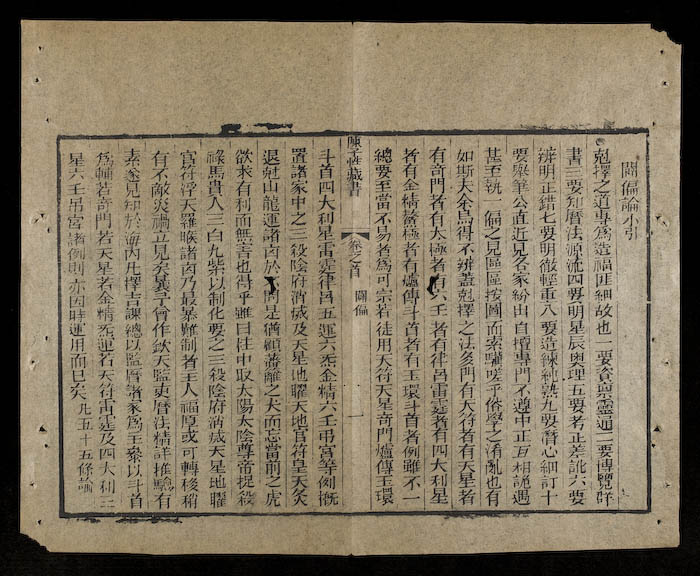 闢偏論小引
剋擇之道專為造福匪細故也一要資稟靈通二要博覽群
書三要知曆法源流四要明星辰奧理五要考正差訛六要
辨明正錯七要明徹輕重八要造鍊純熟九要潛心細訂十
要舉筆公直近見各家紛出自擅專門不遵中正互相詭遇
甚至執一偏之見區區按圖而索驥嗟乎俗學之淆亂也有
如斯夫余烏得不辨蓋剋擇之法多門有天符者有天星者
有奇門者有太極者有六壬者有律呂雷霆者有四大利星
者有金精鰲極者有爐傳斗首者有玉環斗首者例雖不一
總要至當不易者為可宗若徒用天符天星奇門爐傳玉環
陳子性藏書 卷之首 闢偏 一
斗首四大利星雷霆律呂五運六炁金精六壬吊宮等例概
置諸家中之三殺陰府消滅及天星地曜天地官符皇天灸
退剋山龍運諸凶於 問是猶顧藩籬之犬而忘當前之虎
欲求有利而無害也得乎雖曰註中取太陽太陰尊帝捉殺
祿馬貴人三白九紫以制化要之三殺陰府消滅天星地曜
官符浮天羅睺諸凶乃最暴難制者主人福厚或可轉移稍
有不敵災禍立見矣曩予會作欽天監吏曆法精詳推驗有
素遂見知於海內凡擇吉課總以監曆諸家為主參以斗首
為輔若奇門若天星若金精炁運若天符雷霆及四大利三
星六壬吊宮諸例則亦因時運用而已矣 凡五十五條論